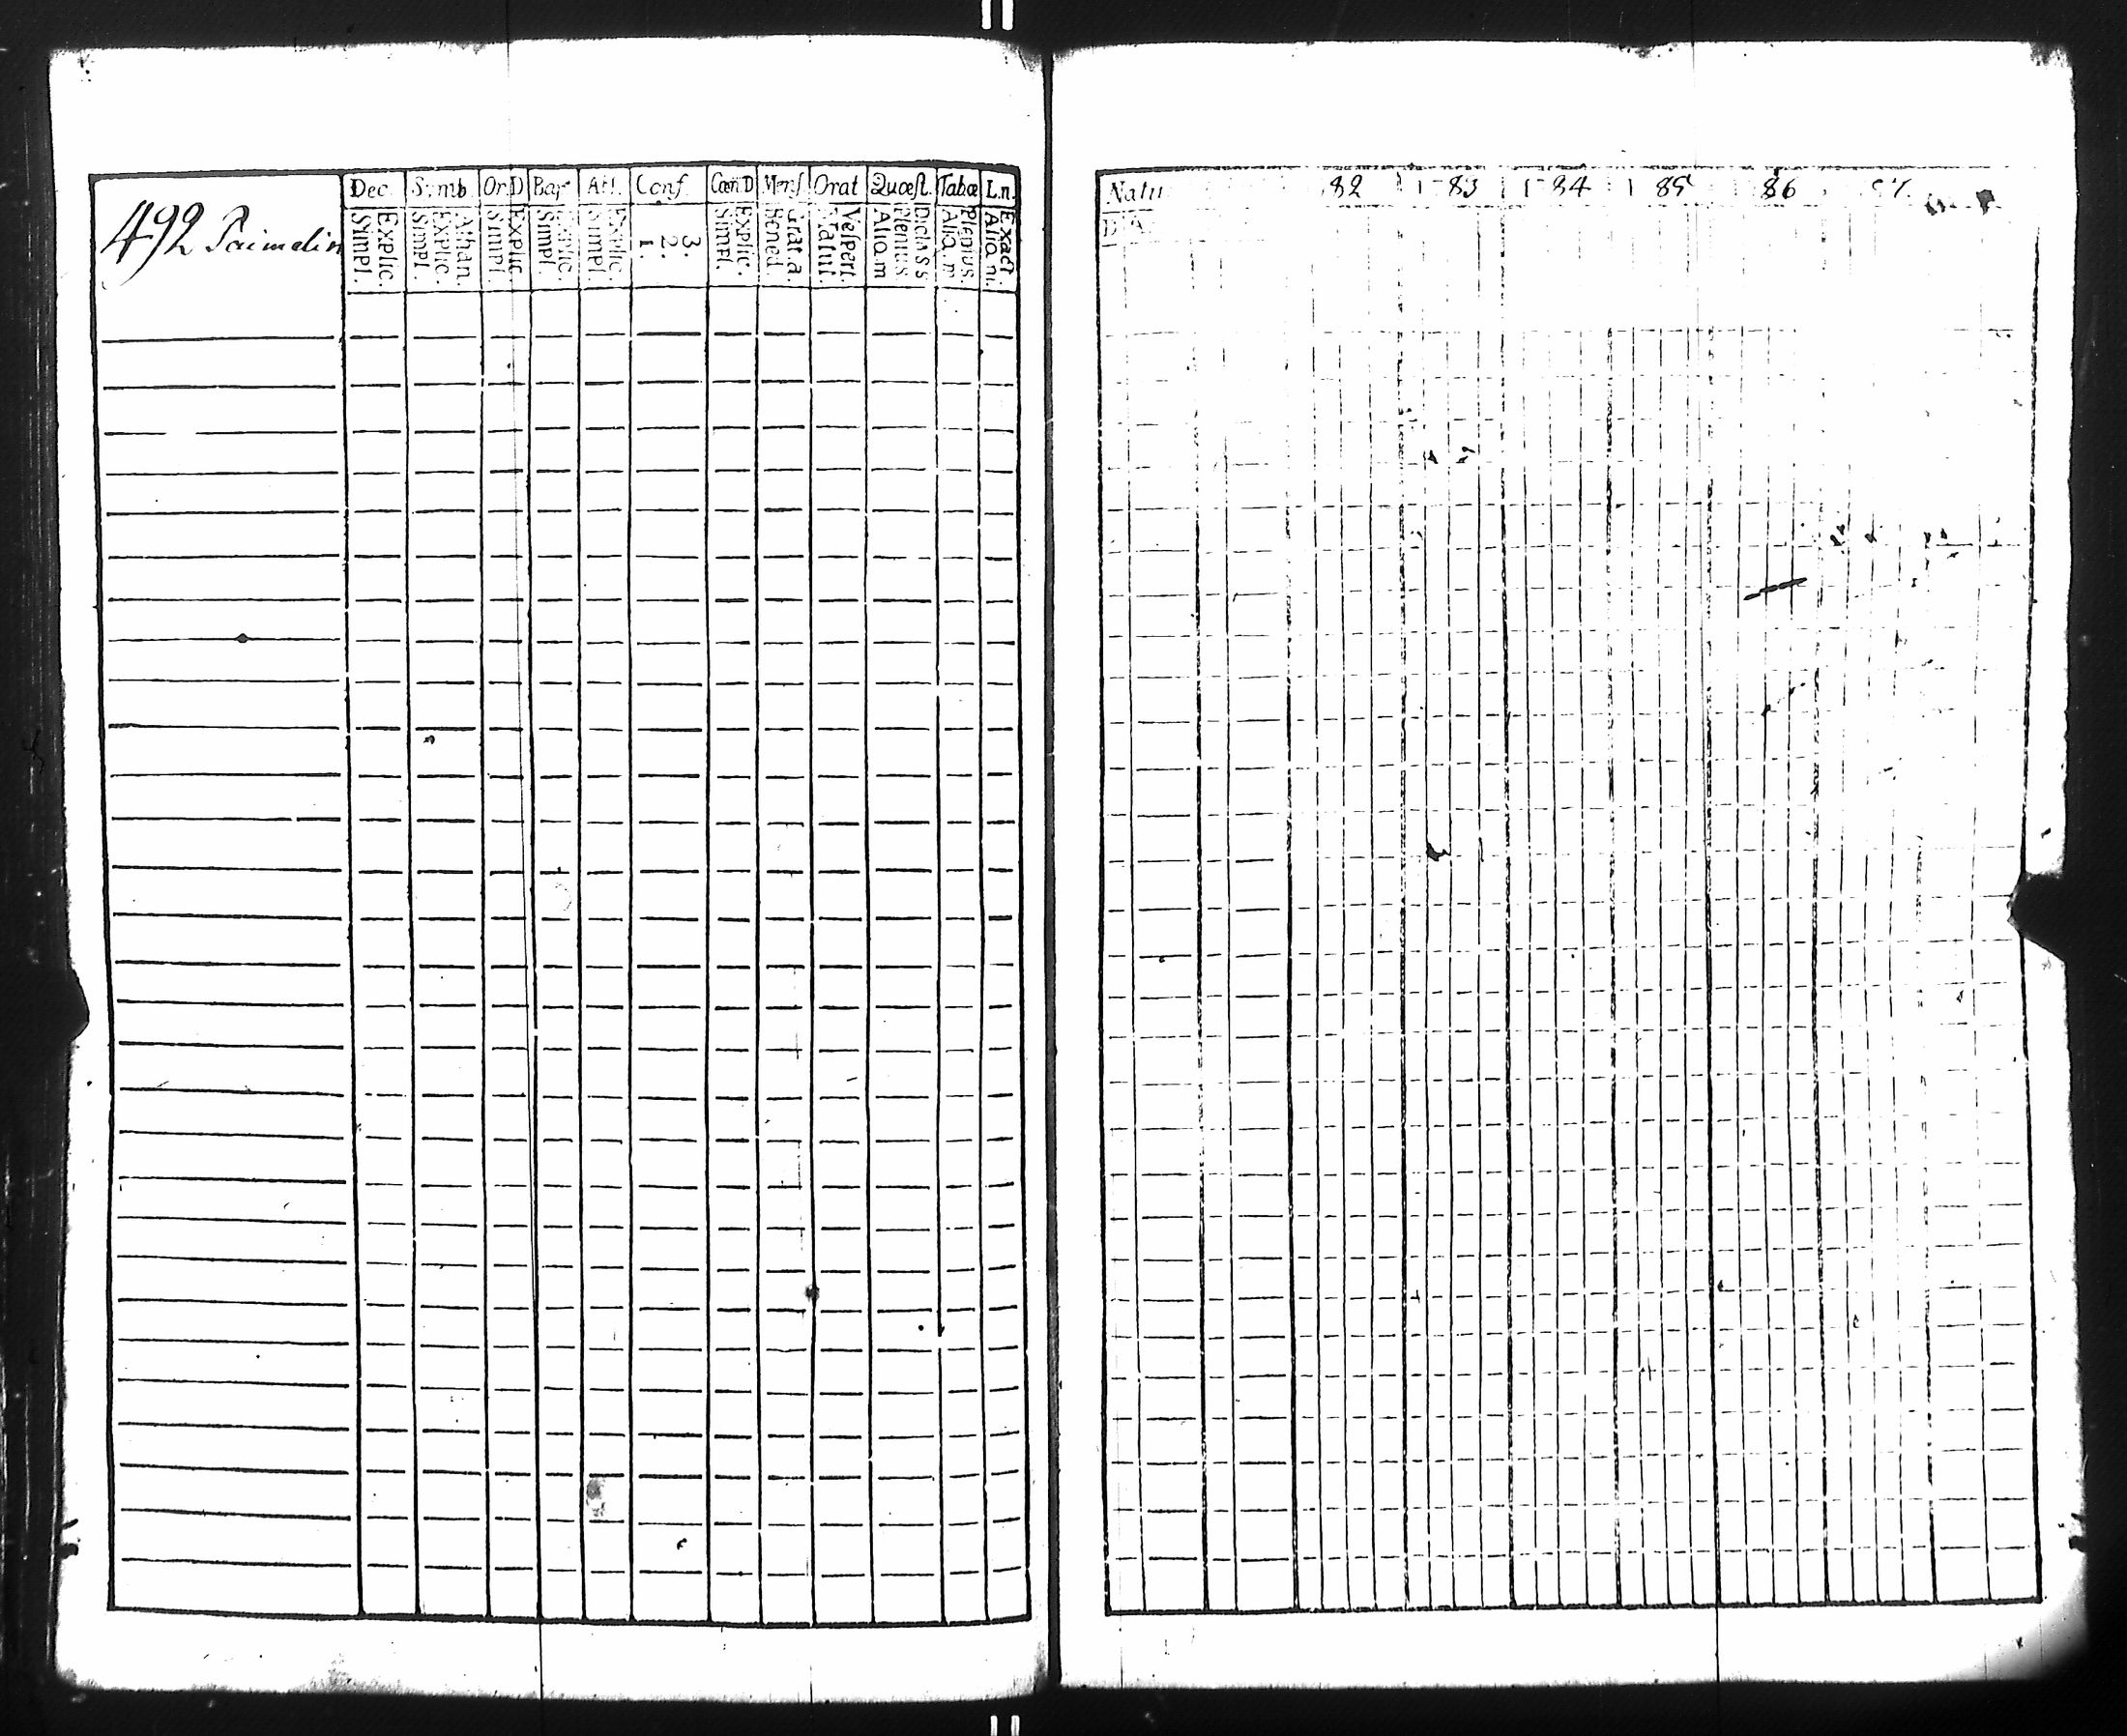 492 Paimelin
Dec. Symb. Or.D Bap Abs. Conf. Cœn.D Menſ Orat Quœſt. Tabœ L.n.
Explic.
Simpl.
Athan.
Explic.
Simpl.
Explic.
Simpl.
Explic.
Simpl.
Explic.
Simpl.
3.
2.
1.
Explic.
Simpl.
Grat.a.
Bened.
Veſpert.
Matut.
Dictis s
Plenius.
Aliq.m
Plenius.
Aliq.m
Exact.
Aliq.m.
Natu
82 83 84 85 86 87
D